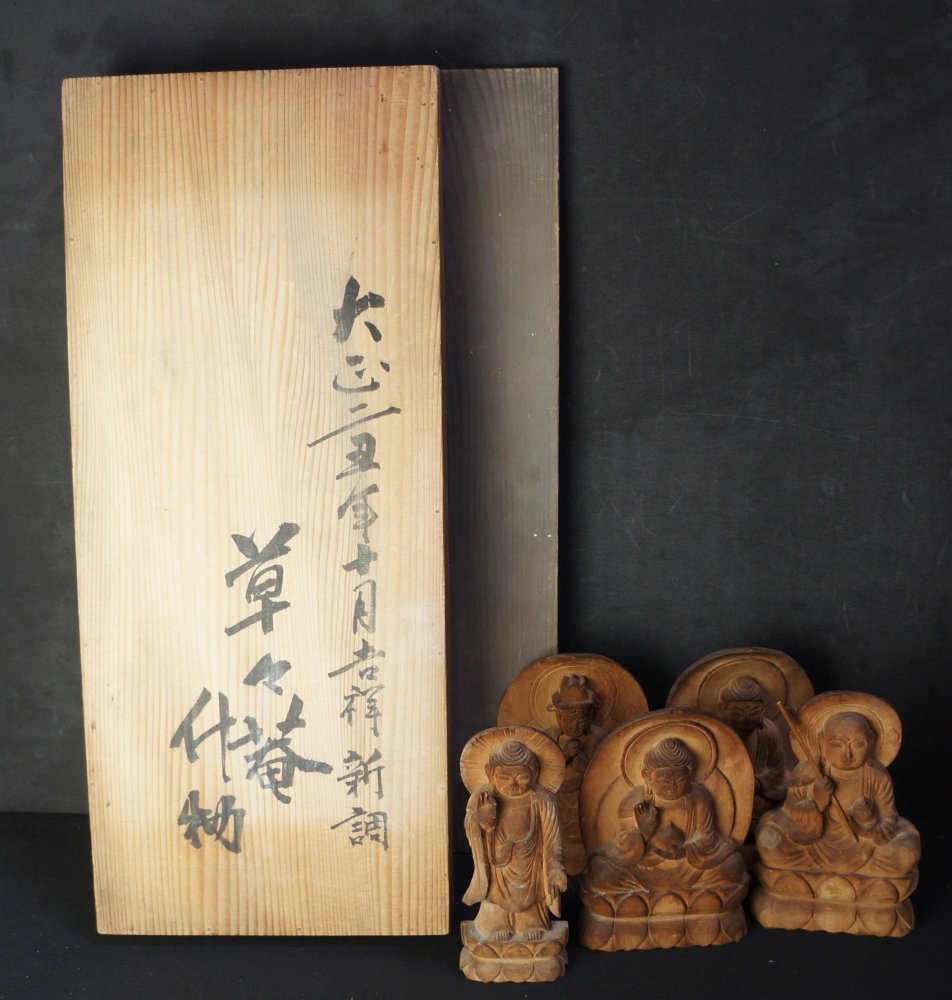 大正二丑年十月吉祥新調
草々菴
什物